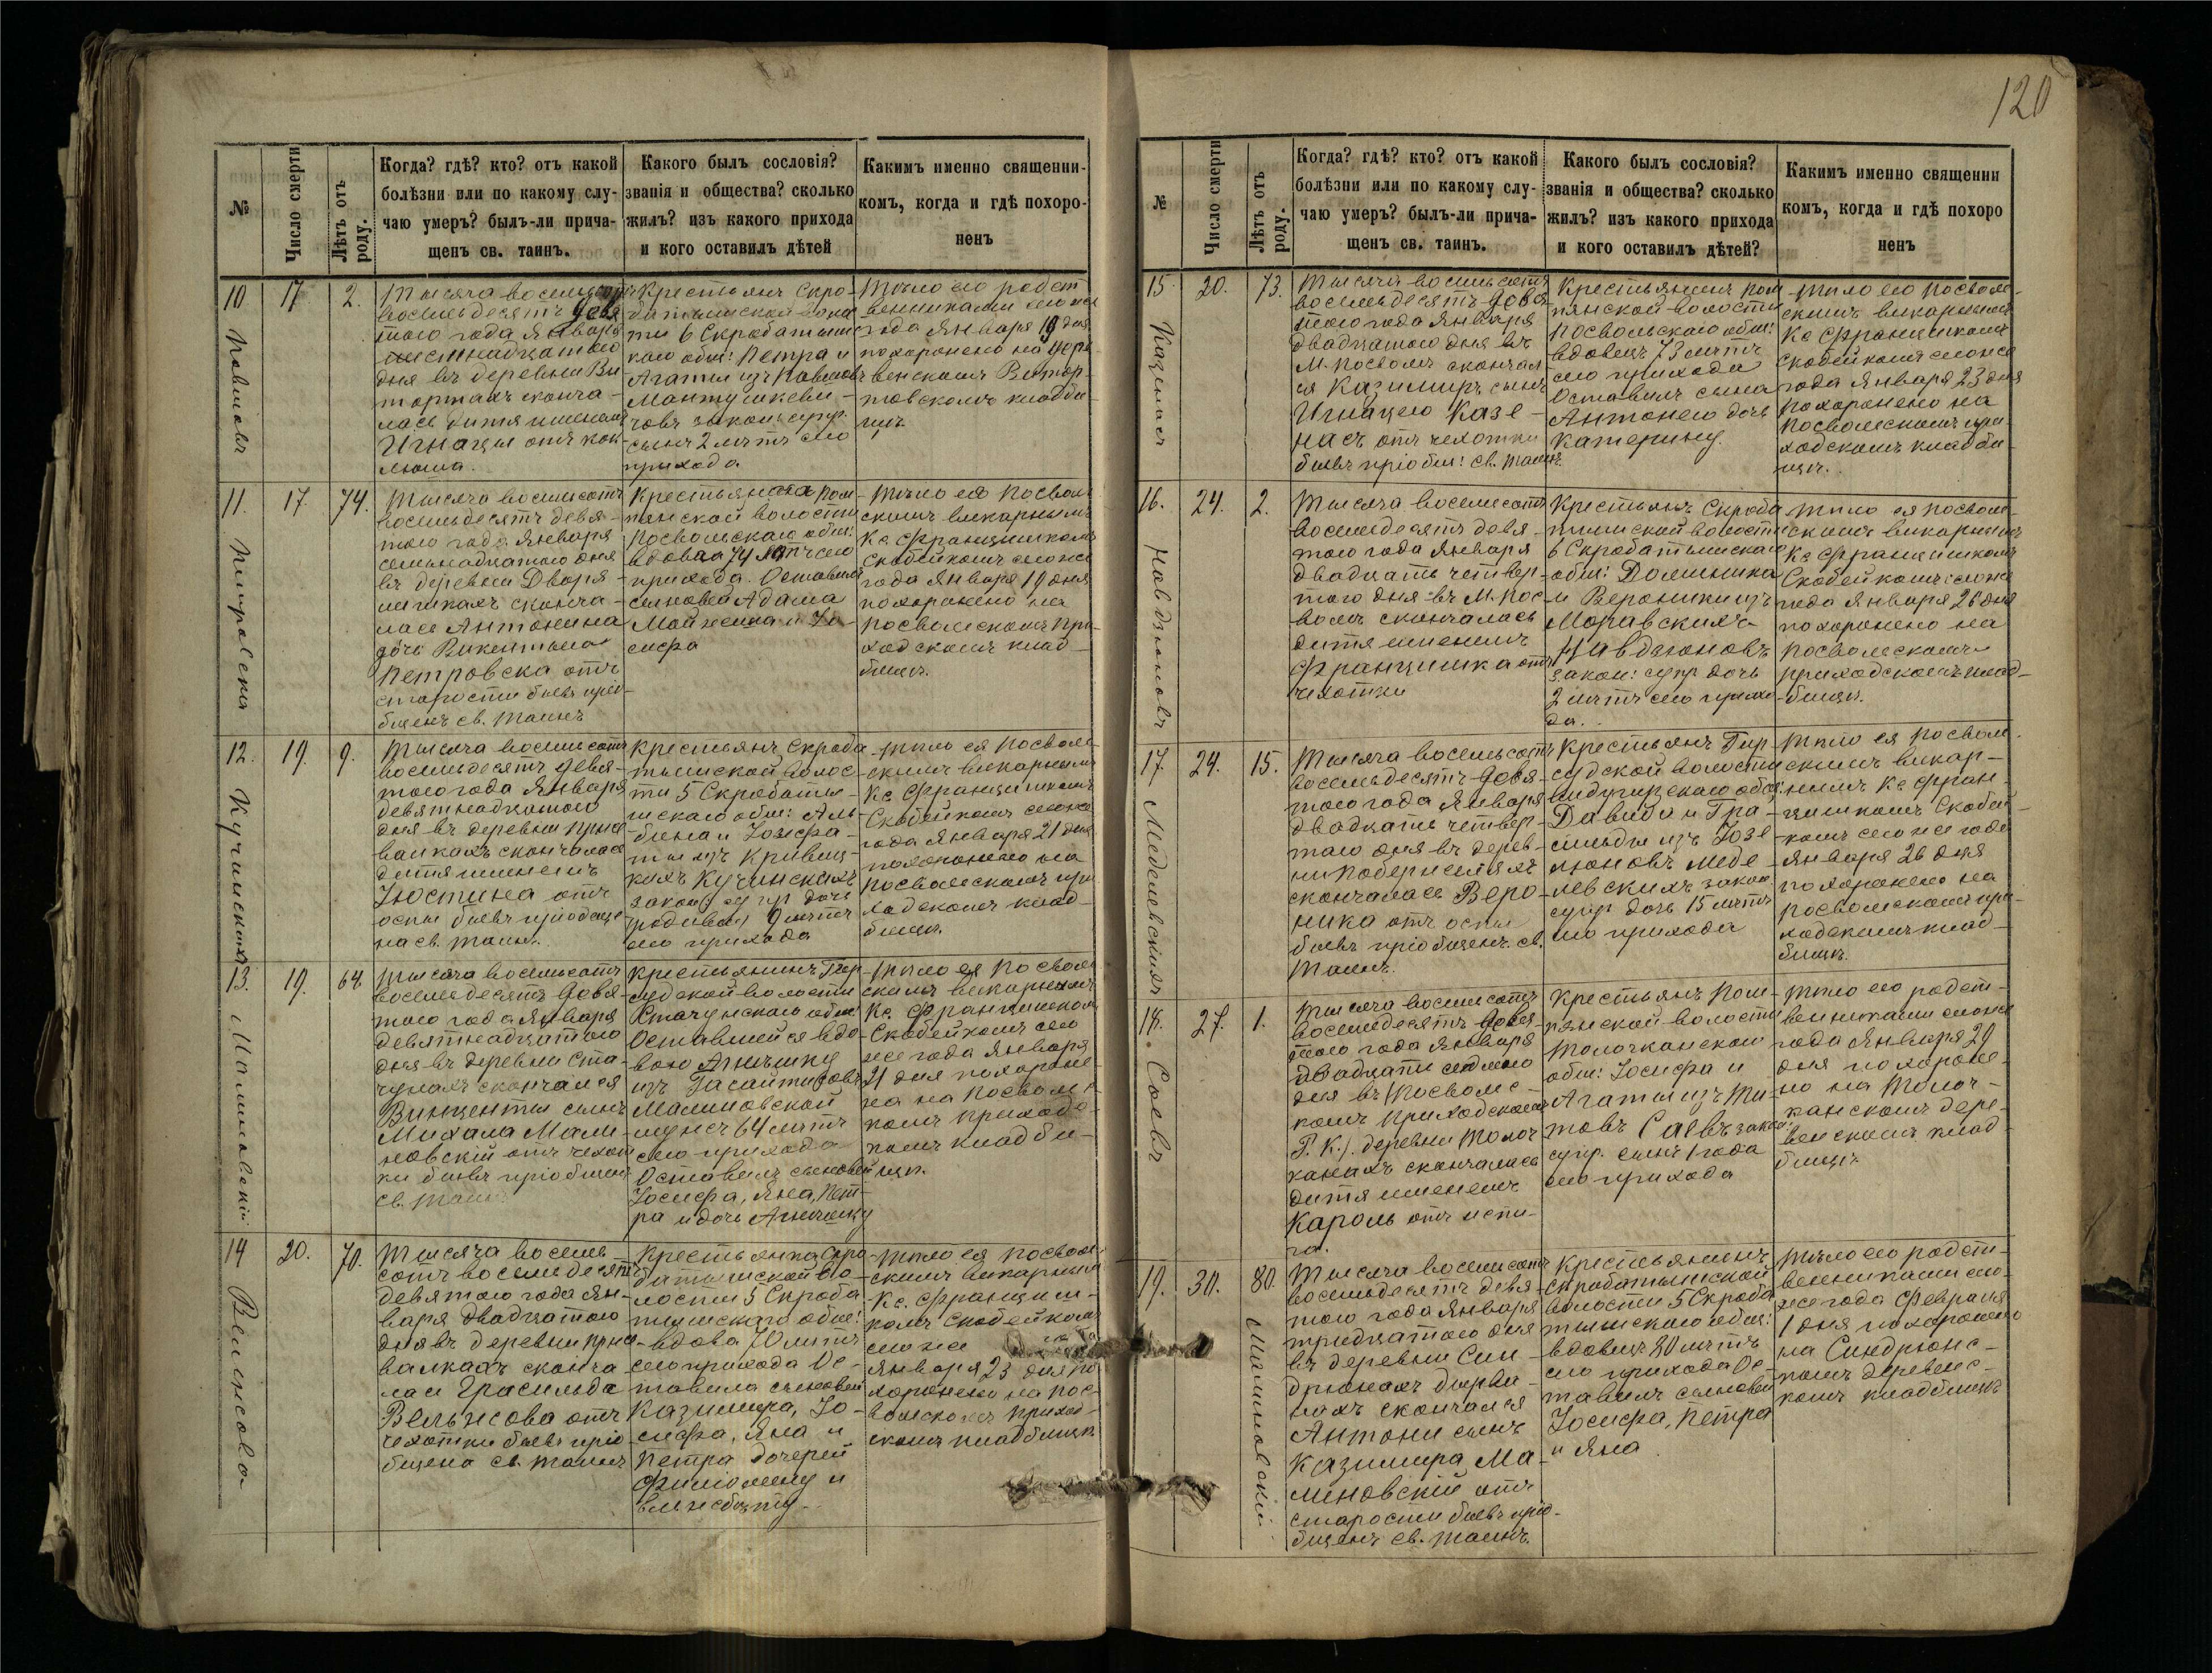 120
№
Число смерти
Лѣтъ отъ роду.
Когда? гдѣ? кто? отъ какой
болѣзни или по какому слу-
чаю умеръ? былъ-ли прича-
щенъ св. таинъ.
Какого былъ сословія?
званія и общества? сколько
жилъ? изъ какого прихода
и кого оставилъ дѣтей
Какимъ именно священни-
комъ, когда и гдѣ похоро-
ненъ
10
17
2.
Тысяча восемьсотъ
восемьдесятъ девя
таго года Января
дня въ деревни Ви
тортахъ сконча-
лась дитя именемъ
Игнацы отъ кок-
люша.
Крестьянъ Скро-
ти 6 Скробатыши
каго общ: Петра и
Агаты изъ
закон: супр:
сынъ 2 лѣтъ сего
прихода
Тѣло его родст
венниками сегоже
года Января 19 дня
похоронено на дере
венскомъ Витор-
товскомъ кладби
щѣ.
11.
Петровска
17.
74.
Тысяча восемьсотъ
восемьдесятъ девя-
таго года Января
семьнадцатаго дня
въ деревни Дворя
лишкахъ сконча-
лась Антонина
дочь Викентыя
Петровска отъ
старости бывъ прі-
бщенъ св. таинъ
Крестьянка Пом-
пянской волости
Посвольскаго общ:
вдова 74 лѣтъ сего
прихода. Оставила
сыновей Адама
и Іо-
сифа
Тѣло ея Посволь
скимъ викарнымъ
Кс Францишкомъ
Скобейкомъ сегоже
года Января 19 дня
похоронено на
Посвольскомъ при
ходскомъ клад-
бищѣ.
12.
Кучинская
19.
9.
Тысяча восемьсотъ
восемьдесятъ девя-
таго года Января
девятнадцатаго
дня въ деревни
скончалась
дитя именемъ
Юстина отъ
оспы бывъ пріобще
на св. таинъ.
Крестьянъ Скроба
тышской волос-
ти 5 Скробаты-
шскаго общ: Аль-
бина и Іозефа-
ты изъ
Кучинскихъ
закон: супр дочь
9 лѣтъ
сего прихода
Тѣло ея Посволь-
скимъ викарнымъ
Кс Францишкомъ
Скобейкомъ сегоже
года Января 21 дня
похоронено на
Посвольскомъ при
ходскомъ клад-
бищѣ.
13.
Малиновскій
19.
64
Тысяча восемьсотъ
восемьдесятъ девя-
таго года Января
девятнадцатаго
дня въ деревни Ста-
чунахъ скончался
Винценты сынъ
Михала Мали-
новскій отъ чехот
ки бывъ пріобщенъ
св. таинъ
Крестьянинъ Гир-
судской волости
Стачунскаго общ:
Оставшейся вдо-
вою Агнѣшку
изъ
Малиновской
мужъ 64 лѣтъ
сего прихода
Оставилъ сыновей
Іосифа, Яна, Пет-
ра и дочь Агнѣшку
Тѣло ея Посволь
скимъ викарнымъ
Кс. Францишком
Скобейкомъ сего
же года Января
21 дня похороне-
на на Посвольс
комъ приходс
комъ кладби-
щѣ.
14
Вельжсова
20.
70.
Тысяча восемь
сотъ восемьдесятъ
девятаго года Ян-
варя двадцатаго
дня въ деревни
сконча
лась Грасильда
Вельжсова отъ
чехотки бывъ прiо
бщена св. таинъ
Крестьянка Скро
батышской во-
лости 5 Скроба
тышскаго общ:
вдова 70 лѣтъ
сего прихода Ос-
тавила сыновей
Казимира, Іо-
сифа, Яна и
Петра дочерей
Филіомену и
Тѣло ея Посволь
скимъ викарнымъ
Кс. Францишк
комъ Скобейкомъ
сегоже
Января 23 дня по
хоронено на Пос-
вольскомъ приход
скомъ кладбищѣ
№
Число смерти
Лѣтъ отъ роду.
Когда? гдѣ? кто? отъ какой
болѣзни или по какому слу-
чаю умеръ? былъ-ли прича-
щенъ св. таинъ.
Какого былъ сословія?
званія и общества? сколько
жилъ? изъ какого прихода
и кого оставилъ дѣтей?
Какимъ именно священни
комъ, когда и гдѣ похоро
ненъ
15
Казенасъ
20.
73.
Тысяча восемьсотъ
восемьдесятъ девя-
таго года Января
двадцатаго дня въ
М. Посволь скончал
ся Казимиръ сынъ
Игнацего Казе-
насъ отъ чехотки
бывъ пріобщ: св. таинъ.
Крестьянинъ Пом
пянской волости
Посвольскаго общ:
вдовецъ 73 лѣтъ
сего прихода
Оставилъ сына
Антонего дочь
Катерину.
Тѣло его Посволь-
скимъ викарнымъ
Кс Францишкомъ
Скобейкомъ сегоже
года Января 23 дня
похоронено на
Посвольскомъ при
ходскомъ кладби
щѣ.
16.
24.
2.
Тысяча восемьсотъ
восемьдесятъ девя-
таго года Января
двадцать четвер-
таго дня въ М. Пос-
воль скончалась
дитя именемъ
Францишка отъ
чехотки
Крестьянъ Скроба
тышской волости
6 Скробатышскаго
общ: Доминика
и Вероники изъ
Моравскихъ
закон: супр дочь
2 лѣтъ сего прихо
да.
Тѣло ея Посволь-
скимъ викарнымъ
Кс Францишкомъ
Скобейкомъ сегоже
года Января 26 дня
похоронено на
Посвольскомъ
приходскомъ клад-
бищѣ.
17
24.
15.
Тысяча восемьсотъ
восемьдесятъ девя-
таго года Января
двадцать четвер-
таго дня въ дерев-
ни
скончалась Веро-
ника отъ оспы
бывъ пріобщенъ св.
таинъ.
Крестьянъ Гир-
судской волости
общ:
Давида и Гра-
сильды изъ Юзе
люновъ Меде
левскихъ закон
супр дочь 15 лѣтъ
сего прихода
Тѣло ея Посволь
скимъ викар-
нымъ Кс Фран-
цишкомъ Скобей-
комъ сегоже года
Января 26 дня
похоронено на
Посвольскомъ при-
ходскомъ клад-
бищѣ.
18.
27.
1.
Тысяча восемьсотъ
восемьдесятъ девя-
таго года Января
двадцать седмаго
дня въ Посвольс-
комъ приходскомъ
Р. К. деревни Толоч
канахъ скончалась
дитя именемъ
Кароль отъ испу-
га.
Крестьянъ Пом-
пянской волости
Толочканскаго
общ: Іосифа и
Агаты изъ
закон:
супр. сынъ 1 года
сего прихода
Тѣло его родст-
венниками сегоже
года Января 29
дня похороне-
но на Толоч-
канскомъ дере-
венскомъ клад-
бищѣ.
19.
Малиновскій
30.
80
Тысяча восемьсотъ
восемьдесятъ девя
таго года Января
тридцатаго дня
въ деревни Син
дрюнахъ
скончался
Антони сынъ
Казимира Ма-
линовскій отъ
старости бывъ прiо-
бщенъ св. таинъ.
Крестьянинъ
Скробатышской
волости 5 Скроба
тышскаго общ:
вдовецъ 80 лѣтъ
сего прихода Ос-
тавилъ сыновей
Іосифа, Петра
и Яна
Тѣло его родст-
венниками се-
гоже года Февраля
1 дня похоронено
на Синдрюнс-
комъ деревенс-
комъ кладбищѣ